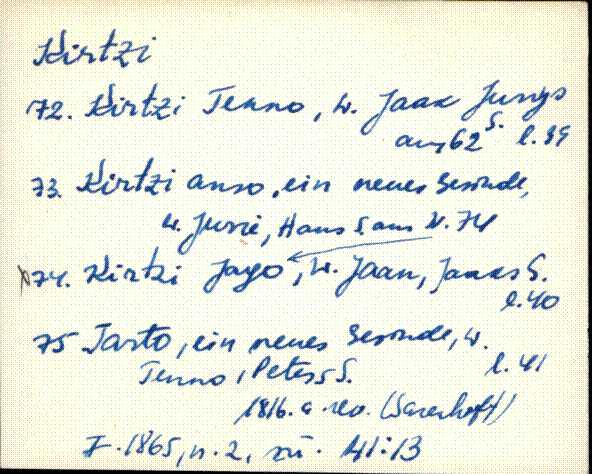 Kirtzi
72. Kirtzi Tenno, W. Jaak Jurrys
aus 62 S. l. 39
73. Kirtzi anso, ein neues Gesinde,
W. Jurrie, Hans S. aus N. 74
74. Kirtzi Jago, W. Jaan, Jaaks S.
l. 40
75 Tarto, ein neues Gesinde, W.
Tenno, Peters S. l. 41
1816. a. rev. (Sauerhoff)
I. 1865, n. 2, 41:13